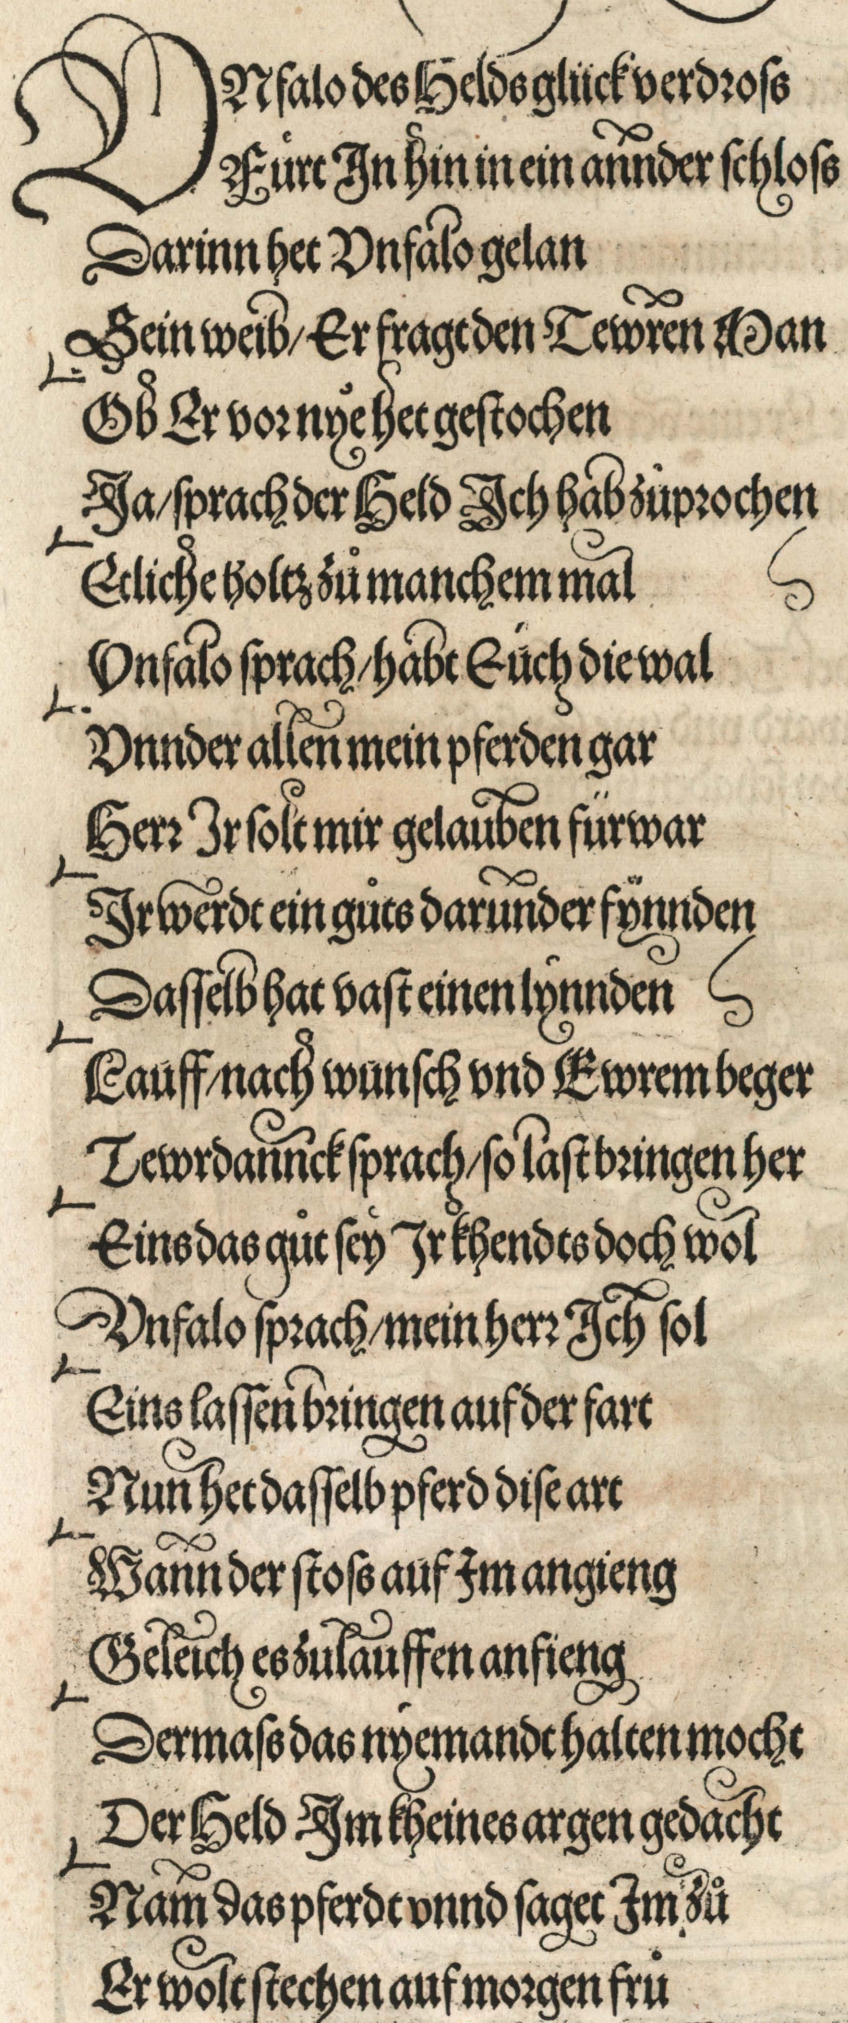 VNfalo des Helds glück verdross
Fůrt In hin in ein annder schloss
Darinn het Vnfalo gelan
Sein weib/ Er fragt den Tewren Man
Ob Er vor nye het gestochen
Ja/ sprach der Held Ich hab züprochen
Etliche holtz zů manchem mal
Vnfalo sprach/ habt Eüch die wal
Vnnder allen mein pferden gar
Herr Ir solt mir gelauben fürwar
Ir werdt ein gůts darunder fynnden
Dasselb hat vast einen lynnden
Lauff/ nach wunsch vnd Ewrem beger
Tewrdannck sprach/ so last bringen her
Eins das gůt sey Ir khendts doch wol
Vnfalo sprach/ mein herr Ich sol
Eins lassen bringen auf der fart
Nun het dasselb pferd dise art
Wann der stoss auf Im angieng
Geleich es zulauffen anfieng
Dermass das nyemandt halten mocht
Der Held Im kheines argen gedacht
Nam das pferdt vnnd saget Im zů
Er wolt stechen auf morgen frů